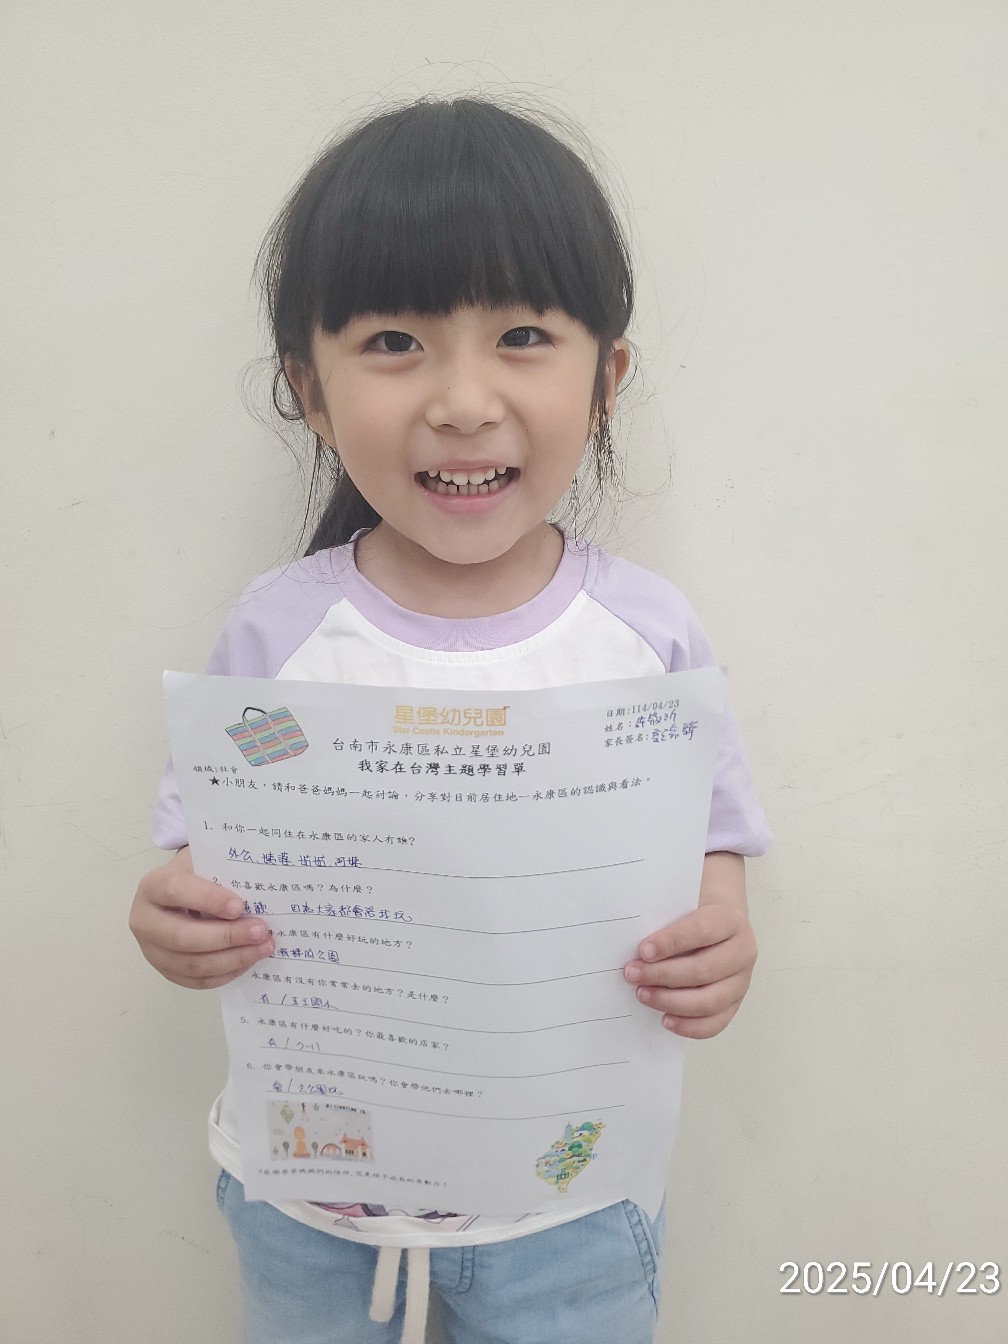 星堡幼兒園
Star Castle Kindergarten
日期:114/04/23
姓名:許
家長簽名:
台南市永康區私立星堡幼兒園
我家在台灣主題學習單
領域:社會
★小朋友,請和爸爸媽媽一起討論,分享對目前居住地—永康區的認識與看法。
1. 和你一起同住在永康區的家人有誰?
外公、姨婆、
2. 你喜歡永康區嗎?為什麼?
喜歡 因為大家都會陪我玩。
永康區有什麼好玩的地方?
的公園
永康區有沒有你常常去的地方?是什麼?
有 /
5. 永康區有什麼好吃的?你最喜歡的店家?
有 /
6. 你會帶朋友來永康區玩嗎?你會帶他們去哪裡?
會 / 去公園玩。
2025/04/23